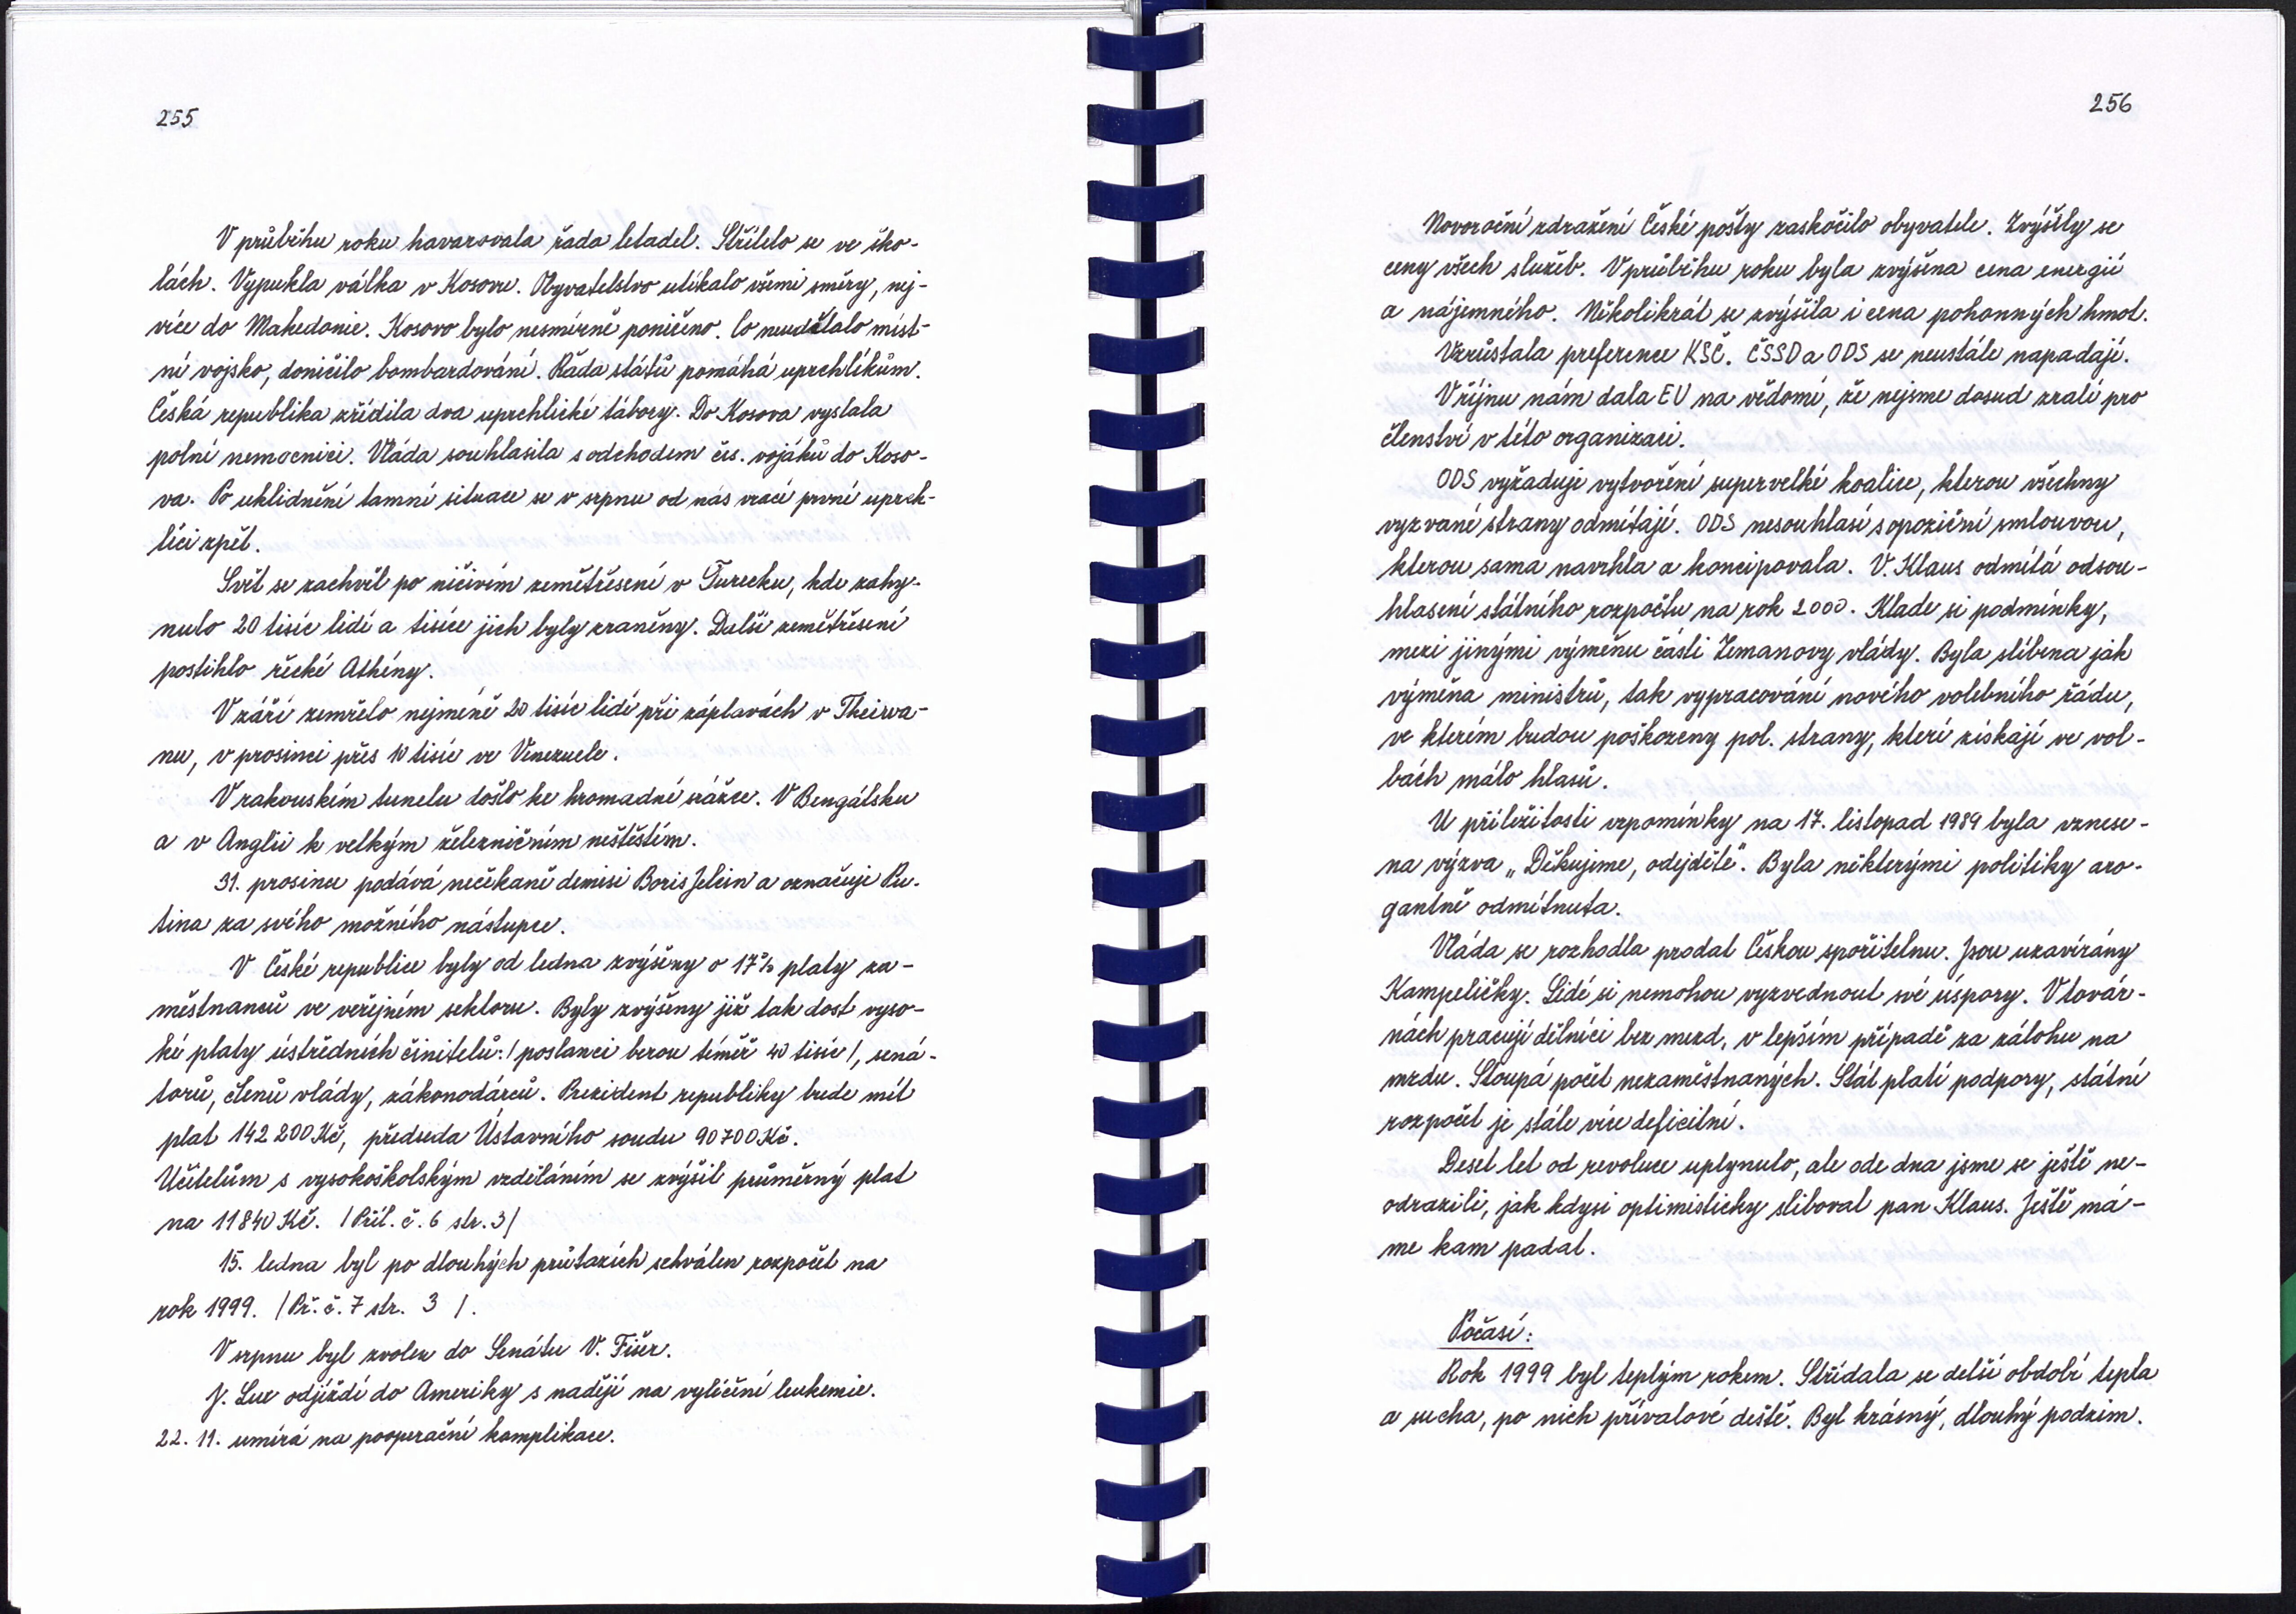 255
V průběhu roku havarovala řada letadel. Střílelo se ve ško-
lách. Vypukla válka v Kosovu. Obyvatelstvo utíkalo všemi směry, nej-
více do Makedonie. Kosovo bylo nesmírně poničeno. Co neudělalo míst-
ní vojsko, doničilo bombardování. Řada států pomáhá uprchlíkům.
Česká republika zřídila dva uprchlické tábory. Do Kosova vyslala
polní nemocnici. Vláda souhlasila s odchodem čes. vojáků do Koso-
va. Po uklidnění tamní situace se v srpnu od nás vrací první uprch-
líci zpět.
Svět se zachvěl po ničivém zemětřesení v Turecku, kde zahy-
nulo 20 tisíc lidí a tisíce jich byly zraněny. Další zemětřesení
postihlo řecké Athény.
V září zemřelo nejméně 20 tisíc lidí při záplavách v Theirva-
nu, v prosinci přes 10 tisíc ve Venezuele.
V rakouském tunelu došlo ke hromadné srážce. V Bengálsku
a v Anglii k velkým železničním neštěstím.
31. prosince podává nečekaně demisi Boris Jelcin a označuje Pu-
tina za svého možného nástupce.
V České republice byly od ledna zvýšeny o 17% platy za-
městnanců ve veřejném sektoru. Byly zvýšeny již tak dost vyso-
ké platy ústředních činitelů: /poslanci berou téměř 40 tisíc/, sená-
torů, členů vlády, zákonodárců. Prezident republiky bude mít
plat 142 200 Kč, předseda Ústavního soudu 90 700 Kč.
Učitelům s vysokoškolským vzděláním se zvýšil průměrný plat
na 11 840 Kč. /Příl. č. 6 str. 3/
15. ledna byl po dlouhých průtazích schválen rozpočet na
rok 1999. /Př. č. 7 str. 3 /.
V srpnu byl zvolen do Senátu V. Fišer.
J. Lux odjíždí do Ameriky s nadějí na vyléčení leukemie.
22. 11. umírá na pooperační komplikace.
256
Novoroční zdražení České pošty zaskočilo obyvatele. Zvýšily se
ceny všech služeb. V průběhu roku byla zvýšena cena energií
a nájemného. Několikrát se zvýšila i cena pohonných hmot.
Vzrůstala preference KSČ. ČSSD a ODS se neustále napadají.
V říjnu nám dala EU na vědomí, že nejsme dosud zralí pro
členství v této organizaci.
ODS vyžaduje vytvoření supervelké koalice, kterou všechny
vyzvané strany odmítají. ODS nesouhlasí s opoziční smlouvou,
kterou sama navrhla a koncipovala. V. Klaus odmítá odsou-
hlasení státního rozpočtu na rok 2000. Klade si podmínky,
mezi jinými výměnu části Zemanovy vlády. Byla slíbena jak
výměna ministrů, tak vypracování nového volebního řádu,
ve kterém budou poškozeny pol. strany, které získají ve vol-
bách málo hlasů.
U příležitosti vzpomínky na 17. listopad 1989 byla vznese-
na výzva „Děkujeme, odejděte". Byla některými politiky aro-
gantně odmítnuta.
Vláda se rozhodla prodat Českou spořitelnu. Jsou uzavírány
Kampeličky. Lidé si nemohou vyzvednout své úspory. V továr-
nách pracují dělníci bez mezd, v lepším případě za zálohu na
mzdu. Stoupá počet nezaměstnaných. Stát platí podpory, státní
rozpočet je stále více deficitní.
Deset let od revoluce uplynulo, ale ode dna jsme se ještě ne-
odrazili, jak kdysi optimisticky sliboval pan Klaus. Ještě má-
me kam padat.
Počasí:
Rok 1999 byl teplým rokem. Střídala se delší období tepla
a sucha, po nich přívalové deště. Byl krásný, dlouhý podzim.